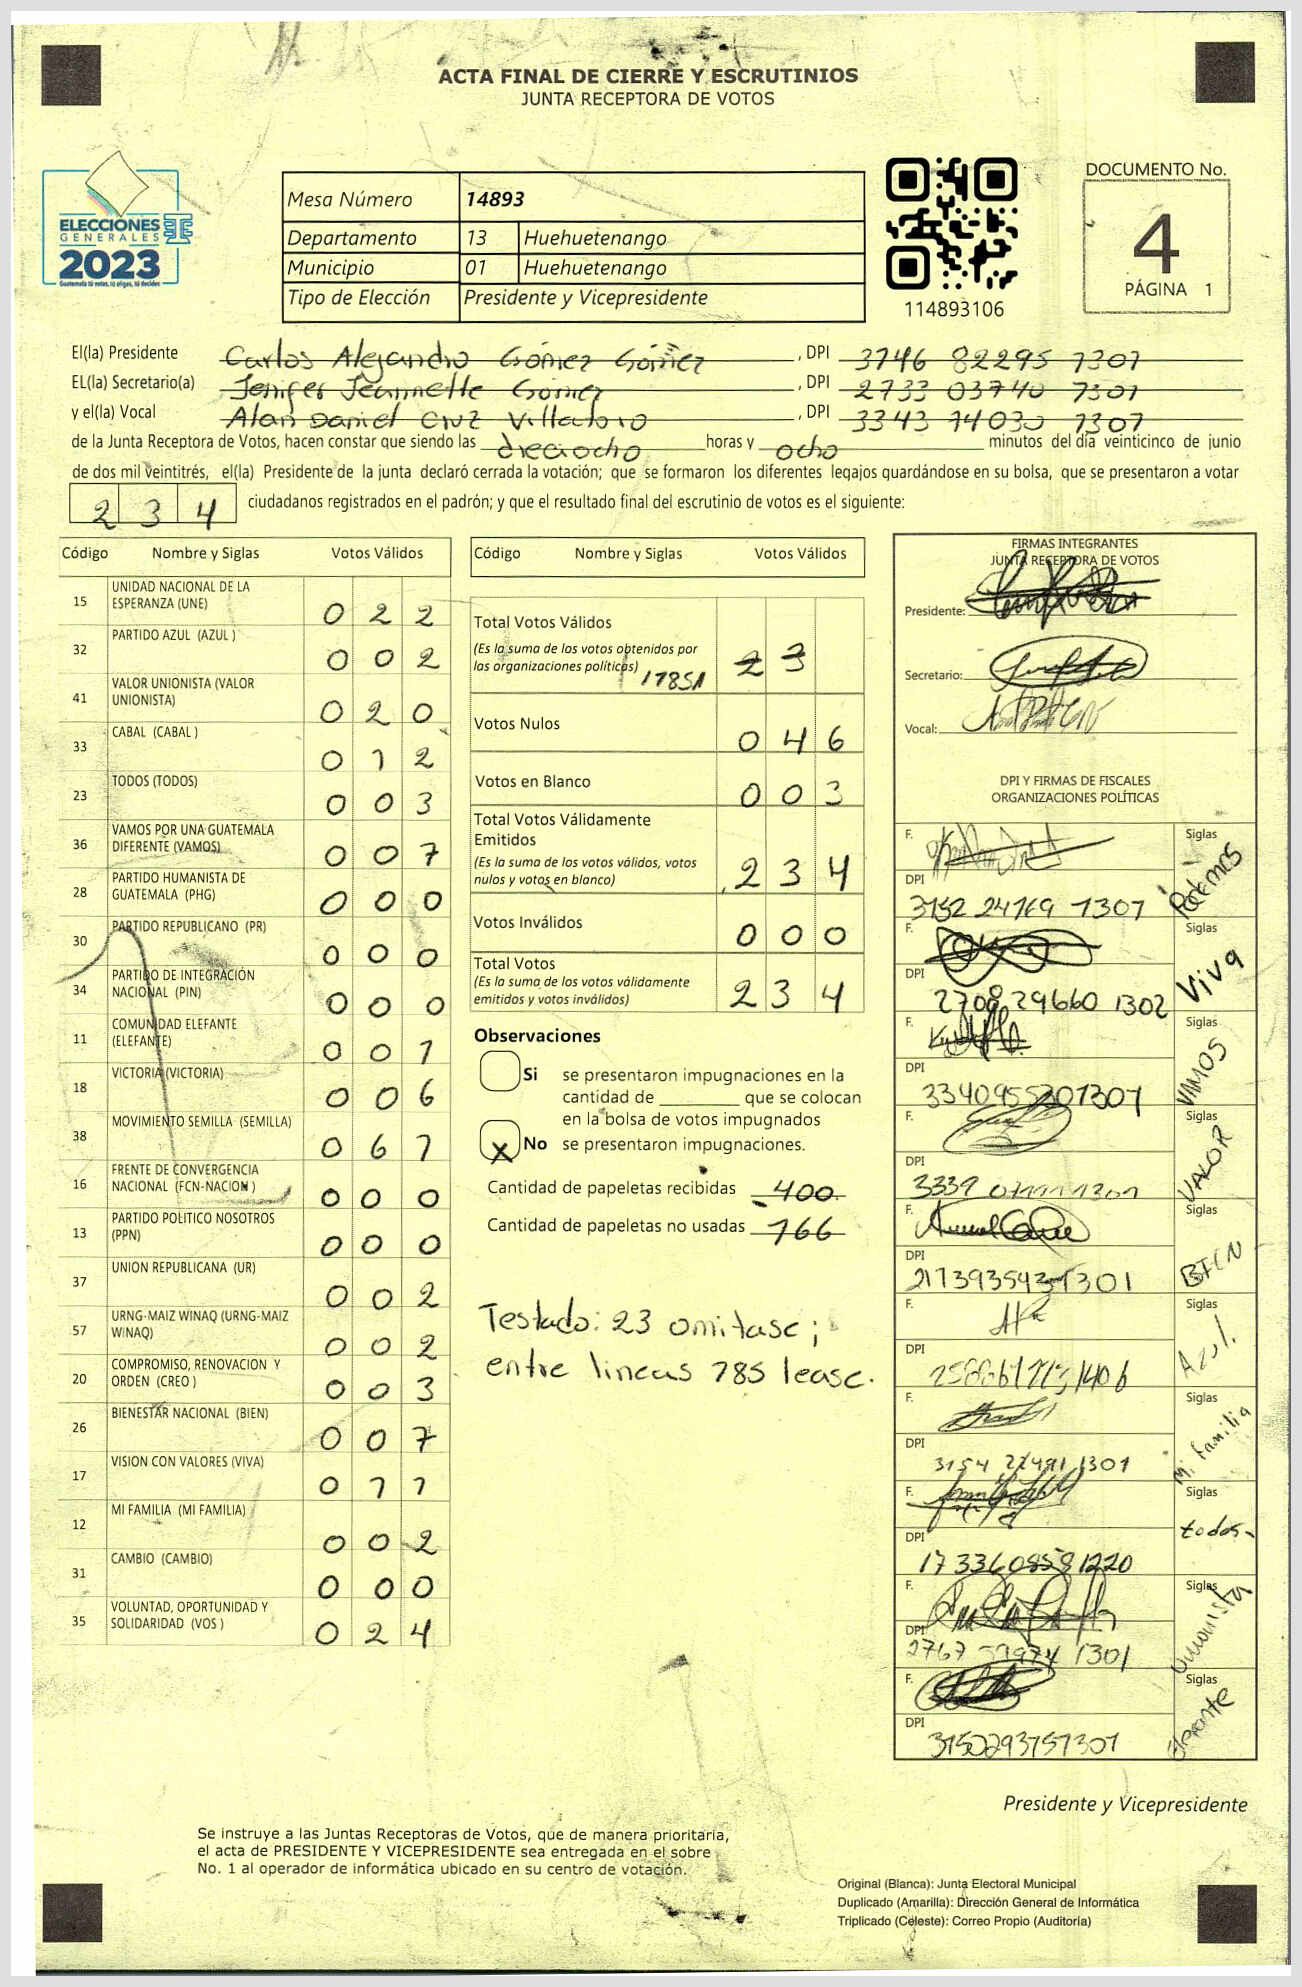 ACTA FINAL DE CIERRE Y ESCRUTINIOS
JUNTA RECEPTORA DE VOTOS
ELECCIONES
GENERALES
2023
Guatemala tú votas, tú eliges, tú decides
Mesa Número 14893
Departamento 13 Huehuetenango
Municipio 01 Huehuetenango
Tipo de Elección Presidente y Vicepresidente
114893106
DOCUMENTO No.
4
PÁGINA 1
El(la) Presidente Carlos Alejandro Gómez Gómez, DPI 3746 82295 1307
EL(la) Secretario(a) Jenifer Jeannette Gómez, DPI 2733 03740 1301
y el(la) Vocal Alan Daniel Cruz Villatoro, DPI 3343 14030 1307
de la Junta Receptora de Votos, hacen constar que siendo las dieciocho horas y ocho minutos del día veinticinco de junio
de dos mil veintitrés, el(la) Presidente de la junta declaró cerrada la votación; que se formaron los diferentes legajos guardándose en su bolsa, que se presentaron a votar
234 ciudadanos registrados en el padrón; y que el resultado final del escrutinio de votos es el siguiente:
Código Nombre y Siglas Votos Válidos
15 UNIDAD NACIONAL DE LA ESPERANZA (UNE) 022
32 PARTIDO AZUL (AZUL ) 002
41 VALOR UNIONISTA (VALOR UNIONISTA) 020
33 CABAL (CABAL ) 012
23 TODOS (TODOS) 003
36 VAMOS POR UNA GUATEMALA DIFERENTE (VAMOS) 007
28 PARTIDO HUMANISTA DE GUATEMALA (PHG) 000
30 PARTIDO REPUBLICANO (PR) 000
34 PARTIDO DE INTEGRACIÓN NACIONAL (PIN) 000
11 COMUNIDAD ELEFANTE (ELEFANTE) 001
18 VICTORIA (VICTORIA) 006
38 MOVIMIENTO SEMILLA (SEMILLA) 061
16 FRENTE DE CONVERGENCIA NACIONAL (FCN-NACION ) 000
13 PARTIDO POLITICO NOSOTROS (PPN) 000
37 UNION REPUBLICANA (UR) 002
57 URNG-MAIZ WINAQ (URNG-MAIZ WINAQ) 002
20 COMPROMISO, RENOVACION Y ORDEN (CREO ) 003
26 BIENESTAR NACIONAL (BIEN) 007
17 VISION CON VALORES (VIVA) 011
12 MI FAMILIA (MI FAMILIA) 002
31 CAMBIO (CAMBIO) 000
35 VOLUNTAD, OPORTUNIDAD Y SOLIDARIDAD (VOS ) 024
Código Nombre y Siglas Votos Válidos
Total Votos Válidos
(Es la suma de los votos obtenidos por
las organizaciones políticas) 23
Votos Nulos 046
Votos en Blanco 003
Total Votos Válidamente
Emitidos
(Es la suma de los votos válidos, votos
nulos y votos en blanco) 234
Votos Inválidos 000
Total Votos
(Es la suma de los votos válidamente
emitidos y votos inválidos) 234
Observaciones
Si se presentaron impugnaciones en la
cantidad de ________ que se colocan
en la bolsa de votos impugnados
X No se presentaron impugnaciones.
Cantidad de papeletas recibidas 400
Cantidad de papeletas no usadas 166
Testado: 23 omitase;
entre lineas 185 lease.
FIRMAS INTEGRANTES
JUNTA RECEPTORA DE VOTOS
Presidente:
Secretario:
Vocal:
DPI Y FIRMAS DE FISCALES
ORGANIZACIONES POLÍTICAS
F. Siglas Podemos
DPI 3152 24769 1307
F. Siglas Viva
DPI 2708 29660 1302
F. Siglas VAMOS
DPI 3340955301307
F. Siglas VALOR
DPI 3339
F. Siglas BIEN
DPI
F. Siglas Azul.
DPI
F. Siglas Mi Familia
DPI 3154 1301
F. Siglas todos
DPI 1733608581220
F. Siglas Unionista
DPI 2767 1301
F. Siglas Elefante
DPI 3150293751307
Presidente y Vicepresidente
Se instruye a las Juntas Receptoras de Votos, que de manera prioritaria,
el acta de PRESIDENTE Y VICEPRESIDENTE sea entregada en el sobre
No. 1 al operador de informática ubicado en su centro de votación.
Original (Blanca): Junta Electoral Municipal
Duplicado (Amarilla): Dirección General de Informática
Triplicado (Celeste): Correo Propio (Auditoría)